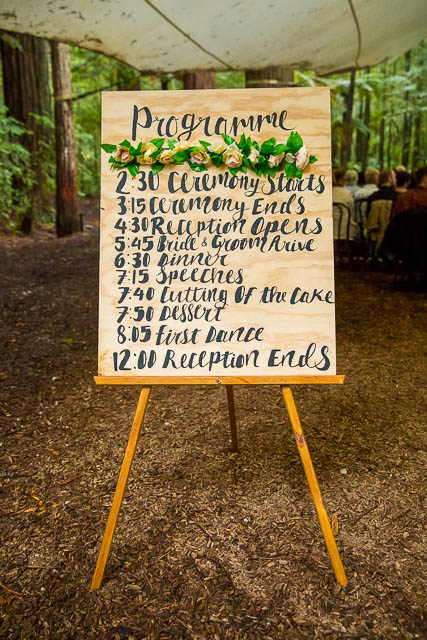 Programme
2:30 Ceremony Starts
3:15 Ceremony Ends
4:30 Reception Opens
5:45 Bride & Groom Arive
6:30 Dinner
7:15 Speeches
7:40 Cutting Of the Cake
7:50 Dessert
8:05 First Dance
12:00 Reception Ends